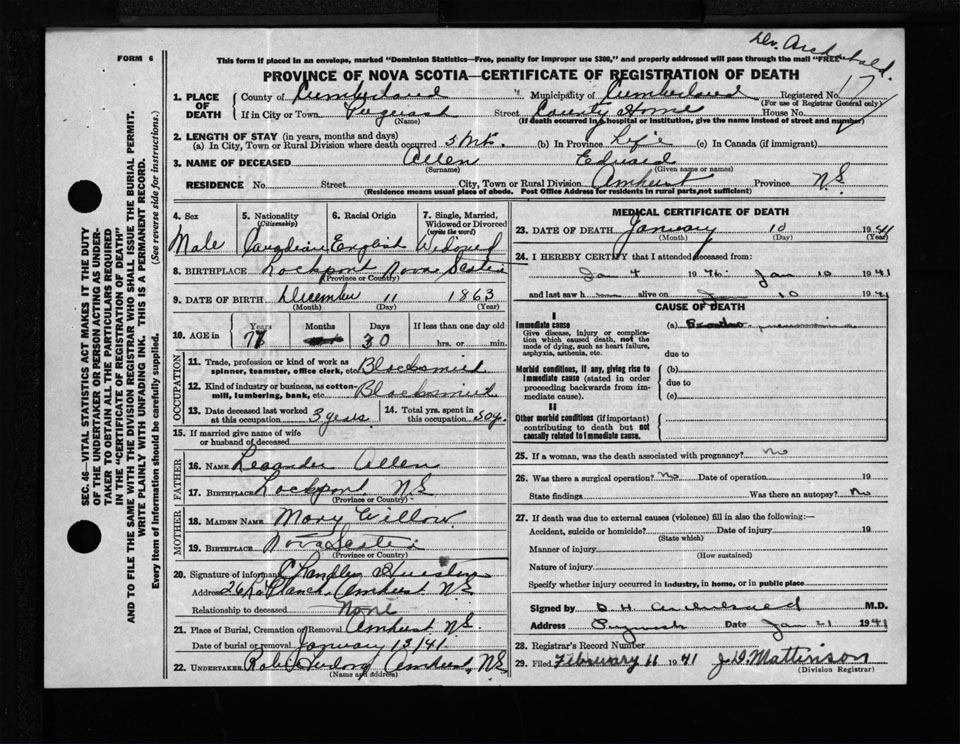 Dr. Archibald.
FORM 6
This form if placed in an envelope, marked "Dominion Statistics—Free, penalty for improper use $300," and properly addressed will pass through the mail "FREE"
PROVINCE OF NOVA SCOTIA—CERTIFICATE OF REGISTRATION OF DEATH
1. PLACE OF DEATH County of Cumberland Municipality of Cumberland Registered No. 17
(For use of Registrar General only)
If in City or Town Pugwash Street County Home House No.
(Name) (If death occurred in a hospital or institution, give the name instead of street and number)
2. LENGTH OF STAY (in years, months and days)
(a) In City, Town or Rural Division where death occurred 5 (b) In Province Life (c) In Canada (if immigrant)
3. NAME OF DECEASED Allen Edward
(Surname) (Given name or names)
RESIDENCE No. Street City, Town or Rural Division Amherst Province N.S.
(Residence means usual place of abode. Post Office Address for residents in rural parts, not sufficient)
4. Sex Male
5. Nationality (Citizenship) Canadian
6. Racial Origin English
7. Single, Married, Widowed or Divorced (write the word) Widowed
8. BIRTHPLACE Lockport Nova Scotia
(Province or Country)
9. DATE OF BIRTH December 11 1863
(Month) (Day) (Year)
10. AGE in Years 77 Months Days 30 If less than one day old
hrs. or min.
OCCUPATION
11. Trade, profession or kind of work as spinner, teamster, office clerk, etc. Blacksmith
12. Kind of industry or business, as cotton-mill, lumbering, bank, etc. Blacksmith
13. Date deceased last worked at this occupation 3 years
14. Total yrs. spent in this occupation 50 y.
15. If married give name of wife or husband of deceased
FATHER
16. NAME Leander Allen
17. BIRTHPLACE Lockport N.S.
(Province or Country)
MOTHER
18. MAIDEN NAME Mary Willow
19. BIRTHPLACE Nova Scotia
(Province or Country)
20. Signature of informant Chandler
Address 26 LaPlanche Amherst N.S.
Relationship to deceased None
21. Place of Burial, Cremation or Removal Amherst N.S.
Date of burial or removal January 13/41
22. UNDERTAKER Amherst, N.S.
(Name and address)
MEDICAL CERTIFICATE OF DEATH
23. DATE OF DEATH January 10 1941
(Month) (Day) (Year)
24. I HEREBY CERTIFY that I attended deceased from:
Jan 4 19 to Jan 10 1941
and last saw h alive on 10 1941
CAUSE OF DEATH
I
Immediate cause
Give disease, injury or complication which caused death, not the mode of dying, such as heart failure, asphyxia, asthenia, etc.
(a) Broncho-pneumonia
due to
Morbid conditions, if any, giving rise to immediate cause (stated in order proceeding backwards from immediate cause).
(b)
due to
(c)
II
Other morbid conditions (if important) contributing to death but not causally related to immediate cause.
25. If a woman, was the death associated with pregnancy? No
26. Was there a surgical operation? No Date of operation 19
State findings Was there an autopsy? No
27. If death was due to external causes (violence) fill in also the following:—
Accident, suicide or homicide? Date of injury 19
(State which)
Manner of injury
(How sustained)
Nature of injury
Specify whether injury occurred in industry, in home, or in public place
Signed by D. H. Archibald M.D.
Address Pugwash Date Jan 21 1941
28. Registrar's Record Number
29. Filed February 11 1941 J. D. Mattinson
(Division Registrar)
SEC. 46—VITAL STATISTICS ACT MAKES IT THE DUTY
OF THE UNDERTAKER OR PERSON ACTING AS UNDER-
TAKER TO OBTAIN ALL THE PARTICULARS REQUIRED
IN THE "CERTIFICATE OF REGISTRATION OF DEATH"
AND TO FILE THE SAME WITH THE DIVISION REGISTRAR WHO SHALL ISSUE THE BURIAL PERMIT.
WRITE PLAINLY WITH UNFADING INK. THIS IS A PERMANENT RECORD.
Every item of Information should be carefully supplied. (See reverse side for instructions.)